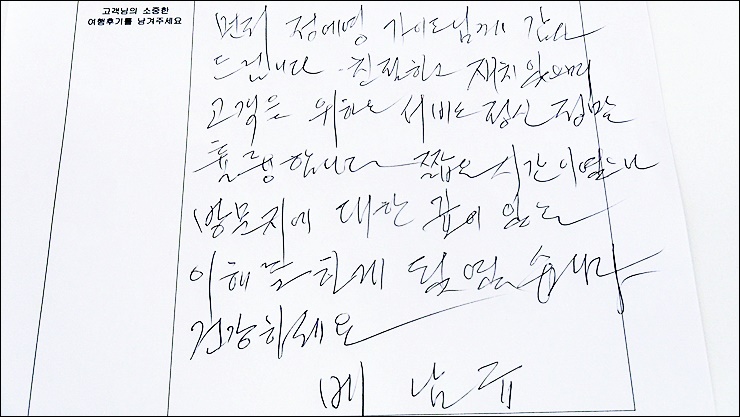 고객님의 소중한
여행후기를 남겨주세요
먼저 정예영 가이드님께 감사
드립니다. 친절하고 재치있으며
고객을 위하는 서비스 정신 정말
훌륭합니다 짧은 시간이었으나
방문지에 대한 깊이 있는
이해를 하게 되었습니다
건강하세요
배남규